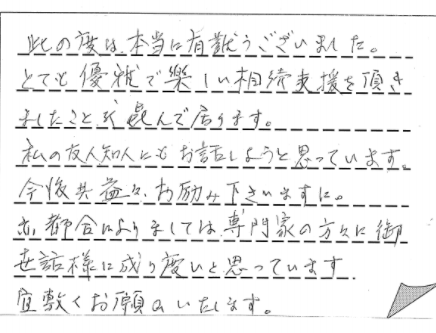 此の度は、本当に有難うございました。
とても優雅で楽しい相続支援を頂き
ましたこと 喜んで居ります。
私の友人知人にも お話しようと思っています。
今後共益々、お励み下さいますに。
亦、都合によりましては、専門家の方々に御
世話様に成り度いと思っています。
宜敷くお願いいたします。